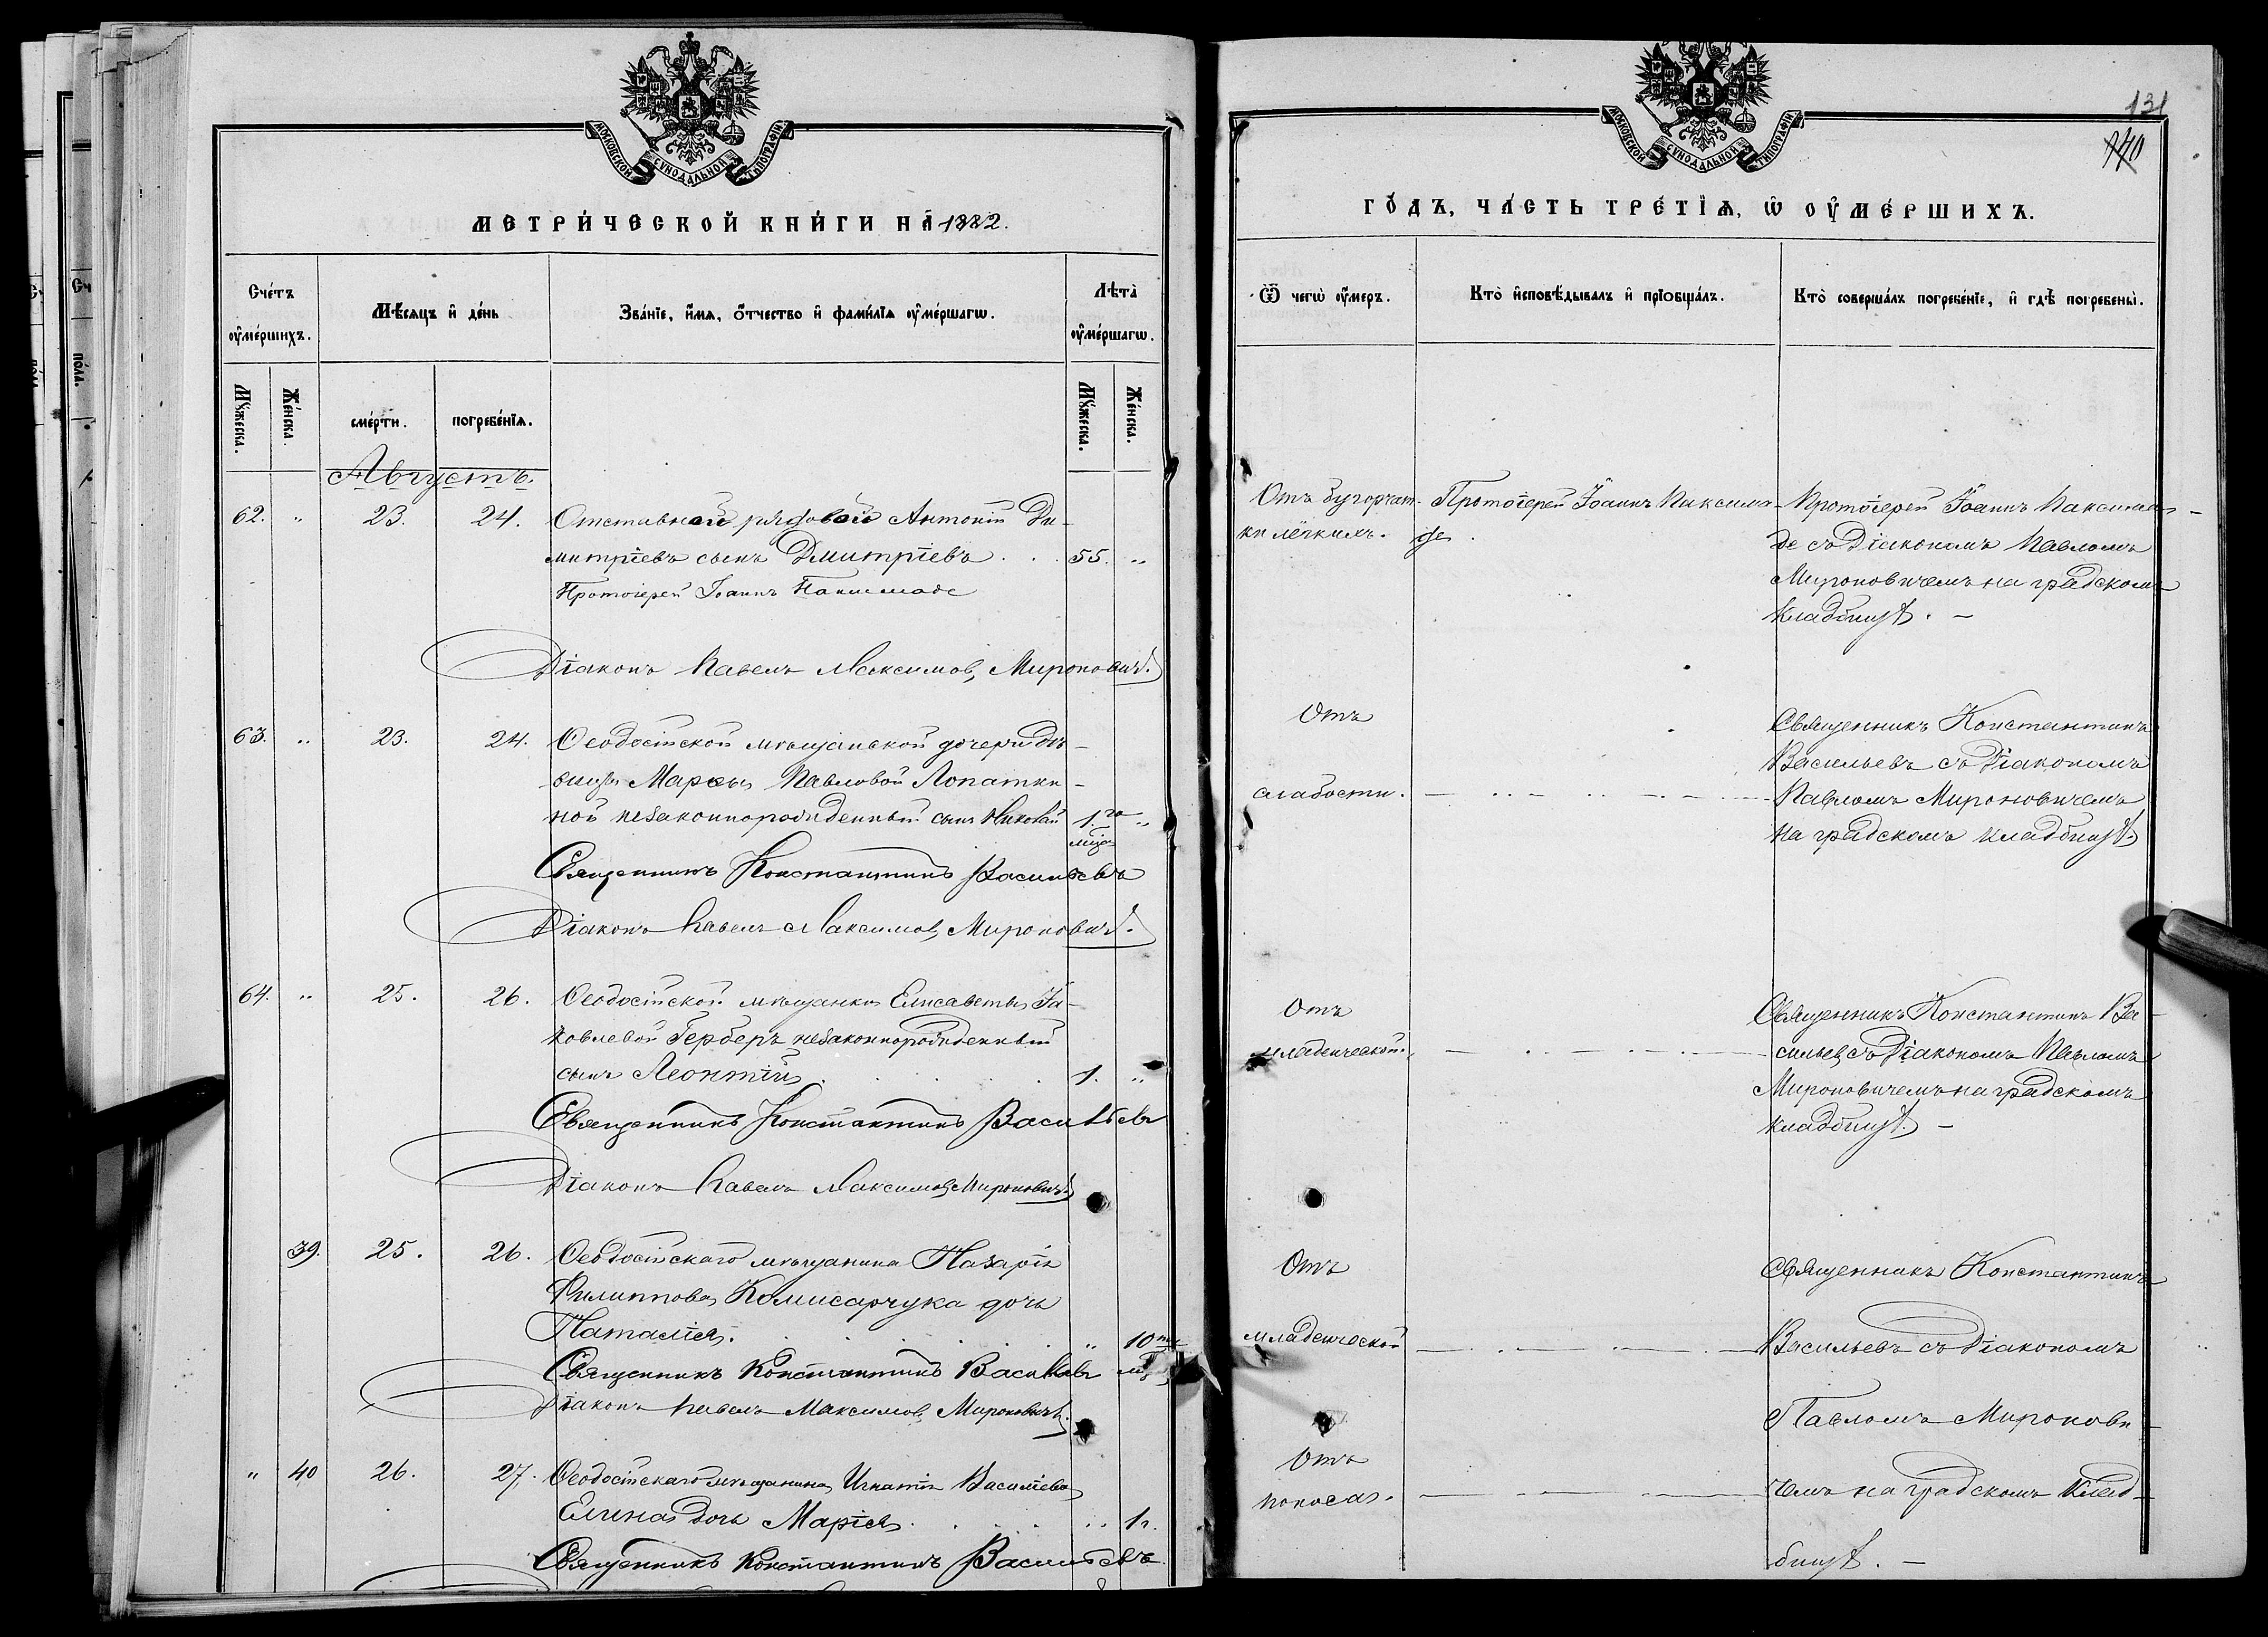 МОСКОВСКОЙ СѴНОДАЛЬНОЙ ТИПОГРАФІИ
МЕТРИ́ЧЕСКОЙ КНИ́ГИ НА 1882.
Сче́тъ ᲂу҆ме́ршихъ.
Мѣ́сяцъ и҆ де́нь
Зва́нїе, и҆́мѧ, ѻ҆́тчество и҆ фами́лїѧ ᲂу҆ме́ршагѡ.
Лѣ́та ᲂу҆ме́ршагѡ.
Мꙋ́жеска.
Же́нска.
сме́рти.
погребе́нїѧ.
Мꙋ́жеска.
Же́нска.
Августъ.
62. " 23. 24. Отставной рядовой Антоній Ди-
митріевъ сынъ Дмитріевъ . . . 55. "
Протоіерей Іоаннъ Наксимаде
Діаконъ Павелъ Максимов. Мироновичъ.
63. " 23. 24. Ѳеодосійской мѣщанской дочери дѣ-
вицы Марѳы Павловой Лопатки-
ной незаконнорожденный сынъ Николай 1.го "
мѣся
Священникъ Константинъ Васильевъ
Діаконъ Павелъ Максимов. Мироновичъ.
64. " 25. 26. Ѳеодосійской мѣщанки Елисаветы Іа-
ковлевой Герберъ незаконнорожденный
сынъ Леонтій . . . . 1. "
Священникъ Константинъ Васильевъ
Діаконъ Павелъ Максимов. Мироновичъ
39. 25. 26. Ѳеодосійскаго мѣщанина Назарія
Филиппова Комисарчука дочь
Наталія. . . . . " 10ти
Священникъ Константинъ Васильевъ мѣ
Діаконъ Павелъ Максимов. Мироновичъ.
" 40 26. 27. Ѳеодосійскаго мѣщанина Игнатія Василіева
Елина дочь Марія . . . . " 1г.
Священникъ Константинъ Васильевъ
131
140
МОСКОВСКОЙ СѴНОДАЛЬНОЙ ТИПОГРАФІИ
ГО́ДЪ, ЧА́СТЬ ТРЕ́ТЇѦ, Ѡ҆ ᲂУ҆МЕ́РШИХЪ.
Ѿ чегѡ̀ ᲂу҆́меръ.
Кто̀ и҆сповѣ́дывалъ и҆ прїѻбща́лъ.
Кто̀ соверша́лъ погребе́нїе, и҆ гдѣ̀ погребены̀.
Отъ бугорчат-
ки лёгкихъ.
Протоіерей Іоаннъ Наксима-
де.
Протоіерей Іоаннъ Наксима-
де съ Діакономъ Павломъ
Мироновичемъ на градскомъ
кладбищѣ. –
Отъ
слабости.
Священникъ Константинъ
Васильевъ съ Діакономъ
Павломъ Мироновичемъ
на градскомъ кладбищѣ.
Отъ
младенческой.
Священникъ Константинъ Ва-
сильев. съ Діакономъ Павломъ
Мироновичемъ на градскомъ
кладбищѣ. –
Отъ
младенческой
Священникъ Константинъ
Васильевъ съ Діакономъ
Павломъ Миронови-
чемъ на градскомъ клад-
бищѣ. –
Отъ
поноса.